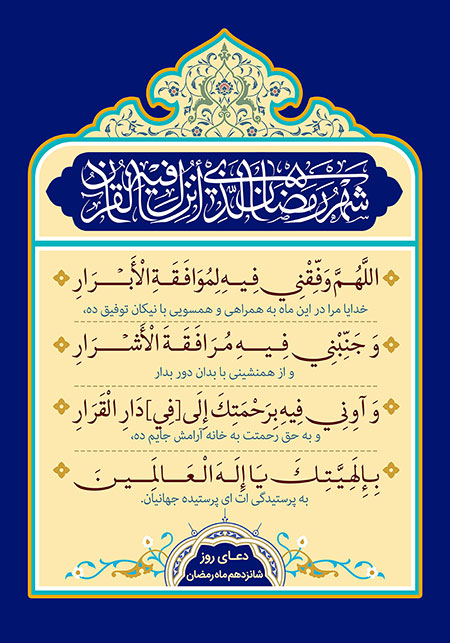 شَهْرُ رَمَضَانَ الَّذِي أُنْزِلَ فِيهِ الْقُرْآنُ
اللَّهُمَّ وَفِّقْنِي فِيهِ لِمُوَافَقَةِ الْأَبْرَارِ
خدایا مرا در این ماه به همراهی و همسویی با نیکان توفیق ده،
وَ جَنِّبْنِي فِيهِ مُرَافَقَةَ الْأَشْرَارِ
و از همنشینی با بدان دور بدار
وَ آوِنِي فِيهِ بِرَحْمَتِكَ إِلَى [فِي] دَارِ الْقَرَارِ
و به حق رحمتت به خانه آرامش جایم ده،
بِإِلَهِيَّتِكَ يَا إِلَهَ الْعَالَمِينَ
به پرستیدگی ات ای پرستیده جهانیان.
دعای روز
شانزدهم ماه رمضان